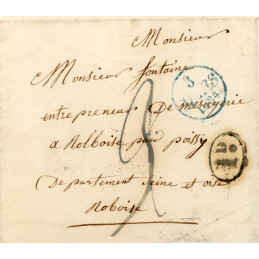 Monsieur
Monsieur fontaine
entrepreneur De mesagerie
a Rolboise par poissy
Departement Seine et oise
Roboise
3
2
1D